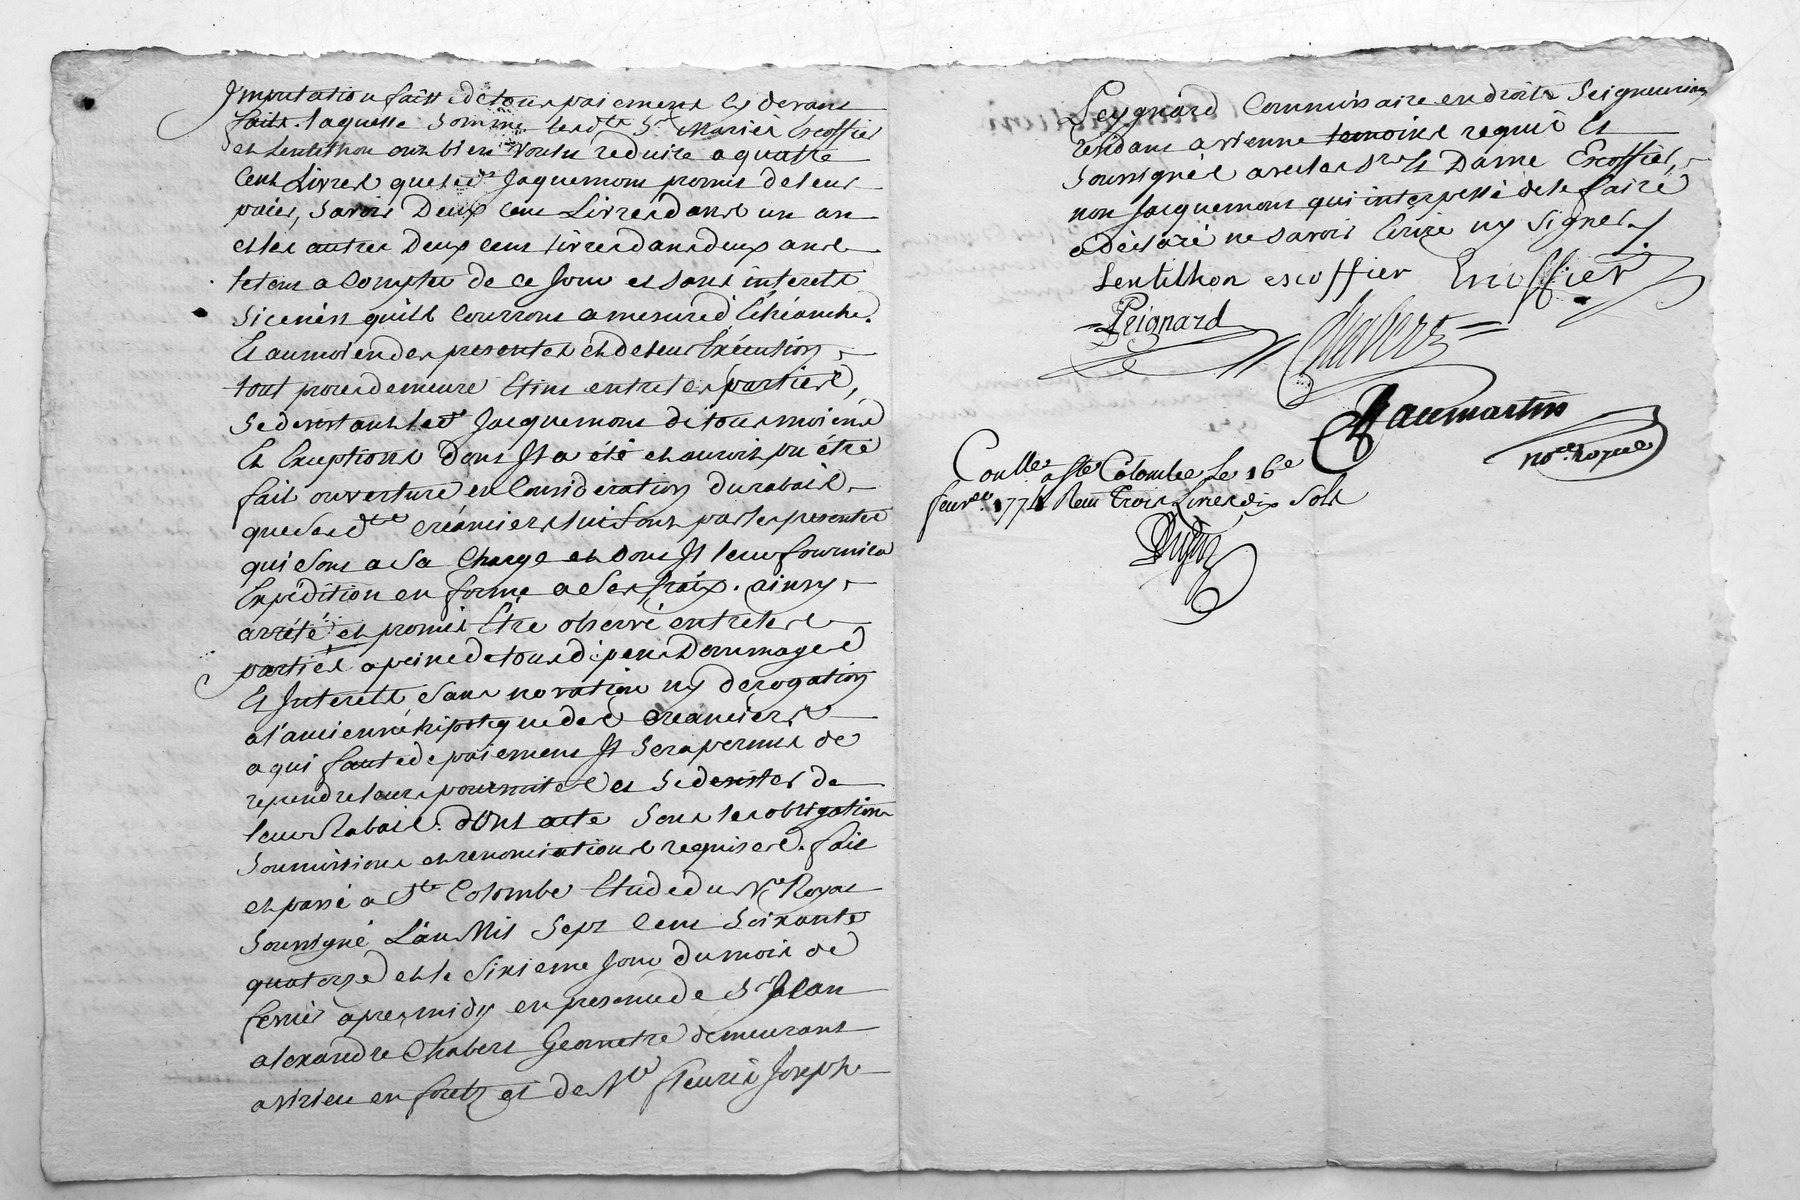 Imputation faitte de tous paiements cy devant
faits. laquelle somme lesdts Sr Mariés Escoffier
et Lentilhon ont bien voulu reduire a quatre
Cent Livres que led. Jaquemont promet de leur
païer, Savoir Deux cent Livres dans un an
et les autres Deux cent livres dans deux ans
le tout a Compter de ce Jour et sans interets
si ce n'est qu'ils Courront a mesure d'Echéanche.
Et au moien des presentes et de leur Exécution
tout procès demeure Eteint entre les parties,
se desistant led. Jacquemont de tous moiens
Et Exceptions dont Il a été et auroit pu étre
fait ouverture en Consideration du rabais
que sesdts créanciers lui font par les presentes
qui sont a sa Charge et dont Il leur fournira
Expédition en forme a ses fraix. ainsy
arrété et promis Etre observé entre les
parties a peine de tous dépens Dommages
Et Interets, sans novation ny derogation
a l'ancienne hipoteque des creanciers
a qui faute de paiement Il sera permis de
reprendre leurs poursuites et se desister de
leur Rabais. dont acte sous les obligations
soumissions et renonciations requises. fait
et passé a Ste Colombe Etude du Nre Royal
soussigné L'an Mil Sept Cent Soixante
quatorze et le sixieme Jour du mois de
fevrier apres midy en presence de Sr Jean
alexandre Chabert Geometre demeurant
a virieu en forets et de Me fleuris Joseph
Peygnard Commissaire en droits Seigneuriaux
residant a vienne temoins requis Et
soussignés avec les Srs Et Dame Escoffier,
non Jacquemont qui interpellé de le faire
a déclaré ne savoir Ecrire ny signer.
Lentilhon escoffier Escoffier
Peignard
Chabert
Naumartin
nore. royal
Conllé a Ste Colombe le 16e
fevrier. 1774 Reçu Trois Livres dix Sols